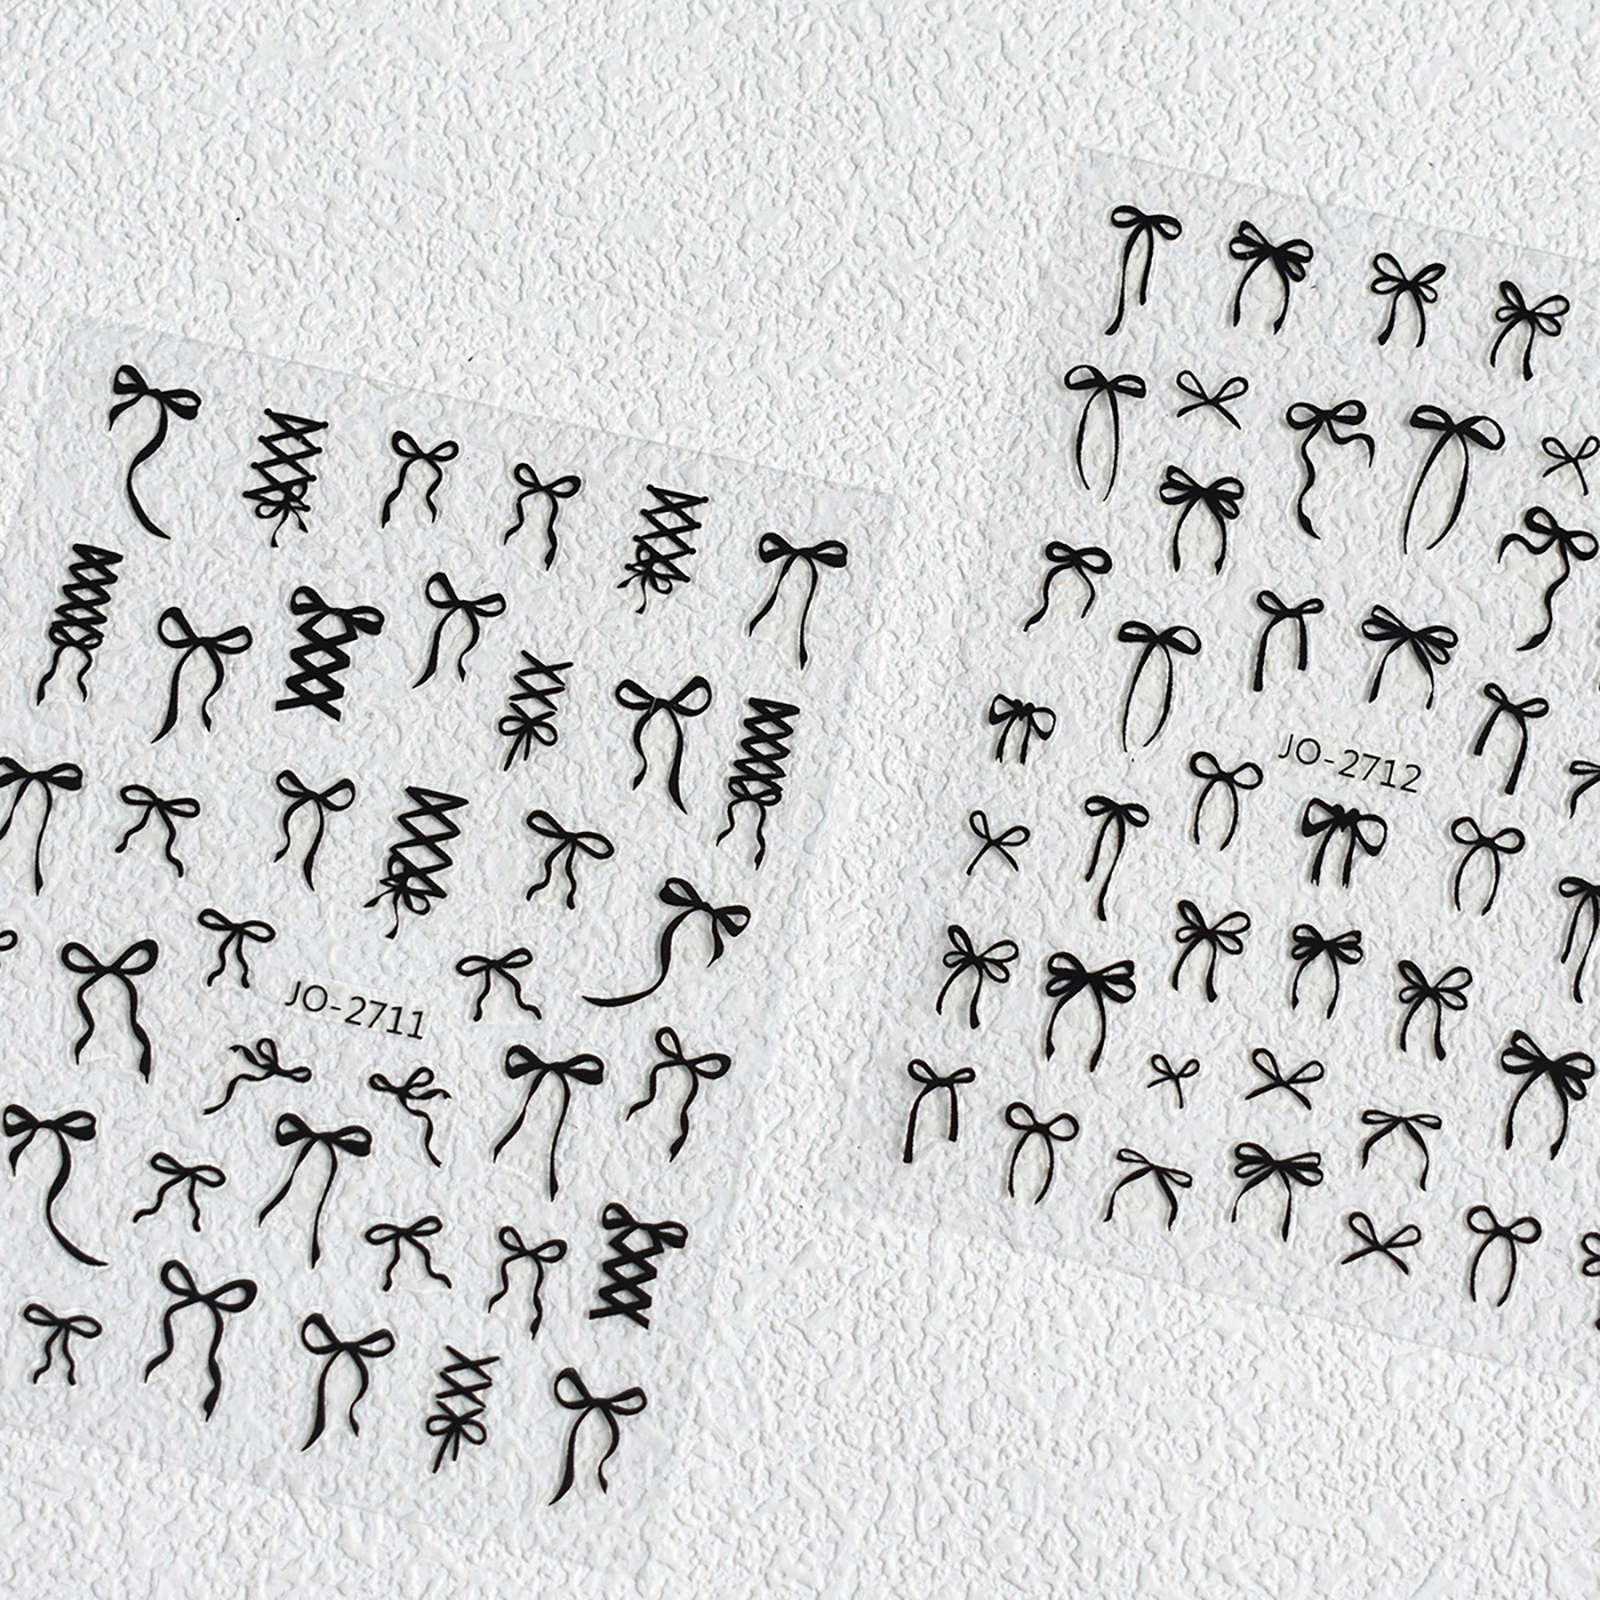 JO-2711
JO-2712